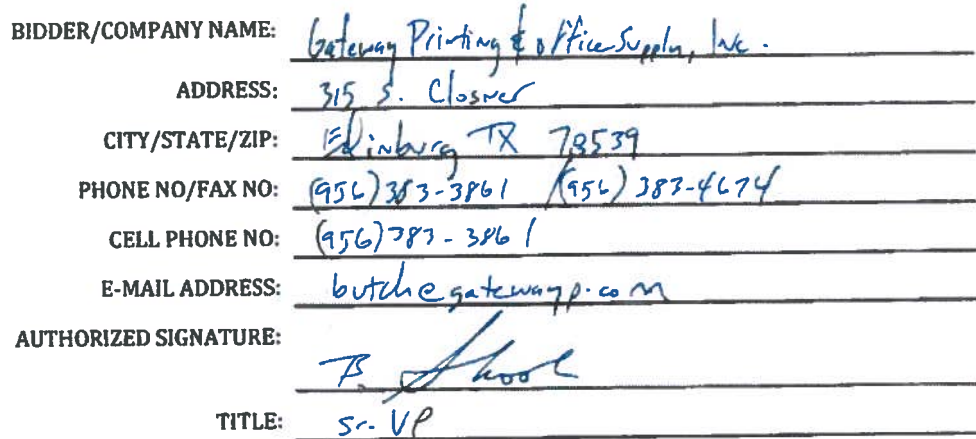 BIDDER/COMPANY NAME: Gateway Printing & Office Supply, Inc.
ADDRESS: 315 S. Closner
CITY/STATE/ZIP: Edinburg TX 78539
PHONE NO/FAX NO: (956) 383-3861 / (956) 383-4674
CELL PHONE NO: (956) 383-3861
E-MAIL ADDRESS: butch@gatewayp.com
AUTHORIZED SIGNATURE:
B.
TITLE: Sr. VP